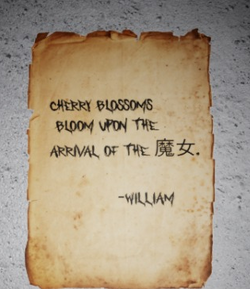 CHERRY BLOSSOMS
BLOOM UPON THE
ARRIVAL OF THE 魔女.
-WILLIAM